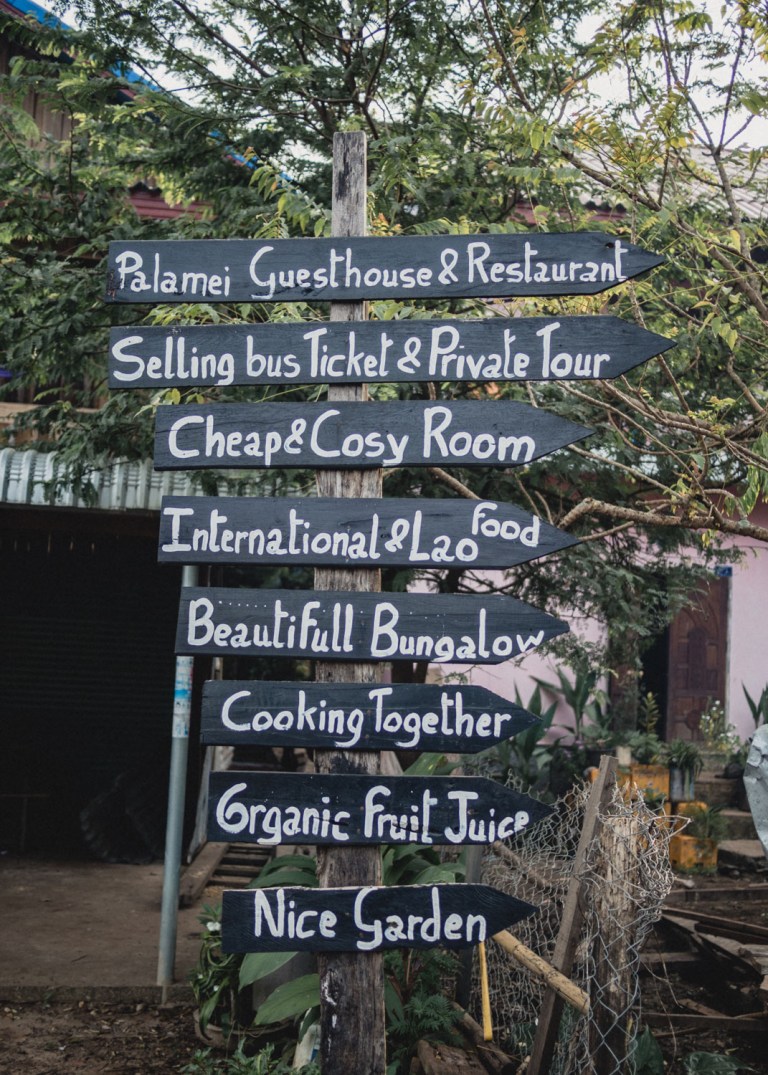 Palamei Guesthouse & Restaurant
Selling bus Ticket & Private Tour
Cheap & Cosy Room
International & Lao Food
Beautifull Bungalow
Cooking Together
Grganic Fruit Juice
Nice Garden